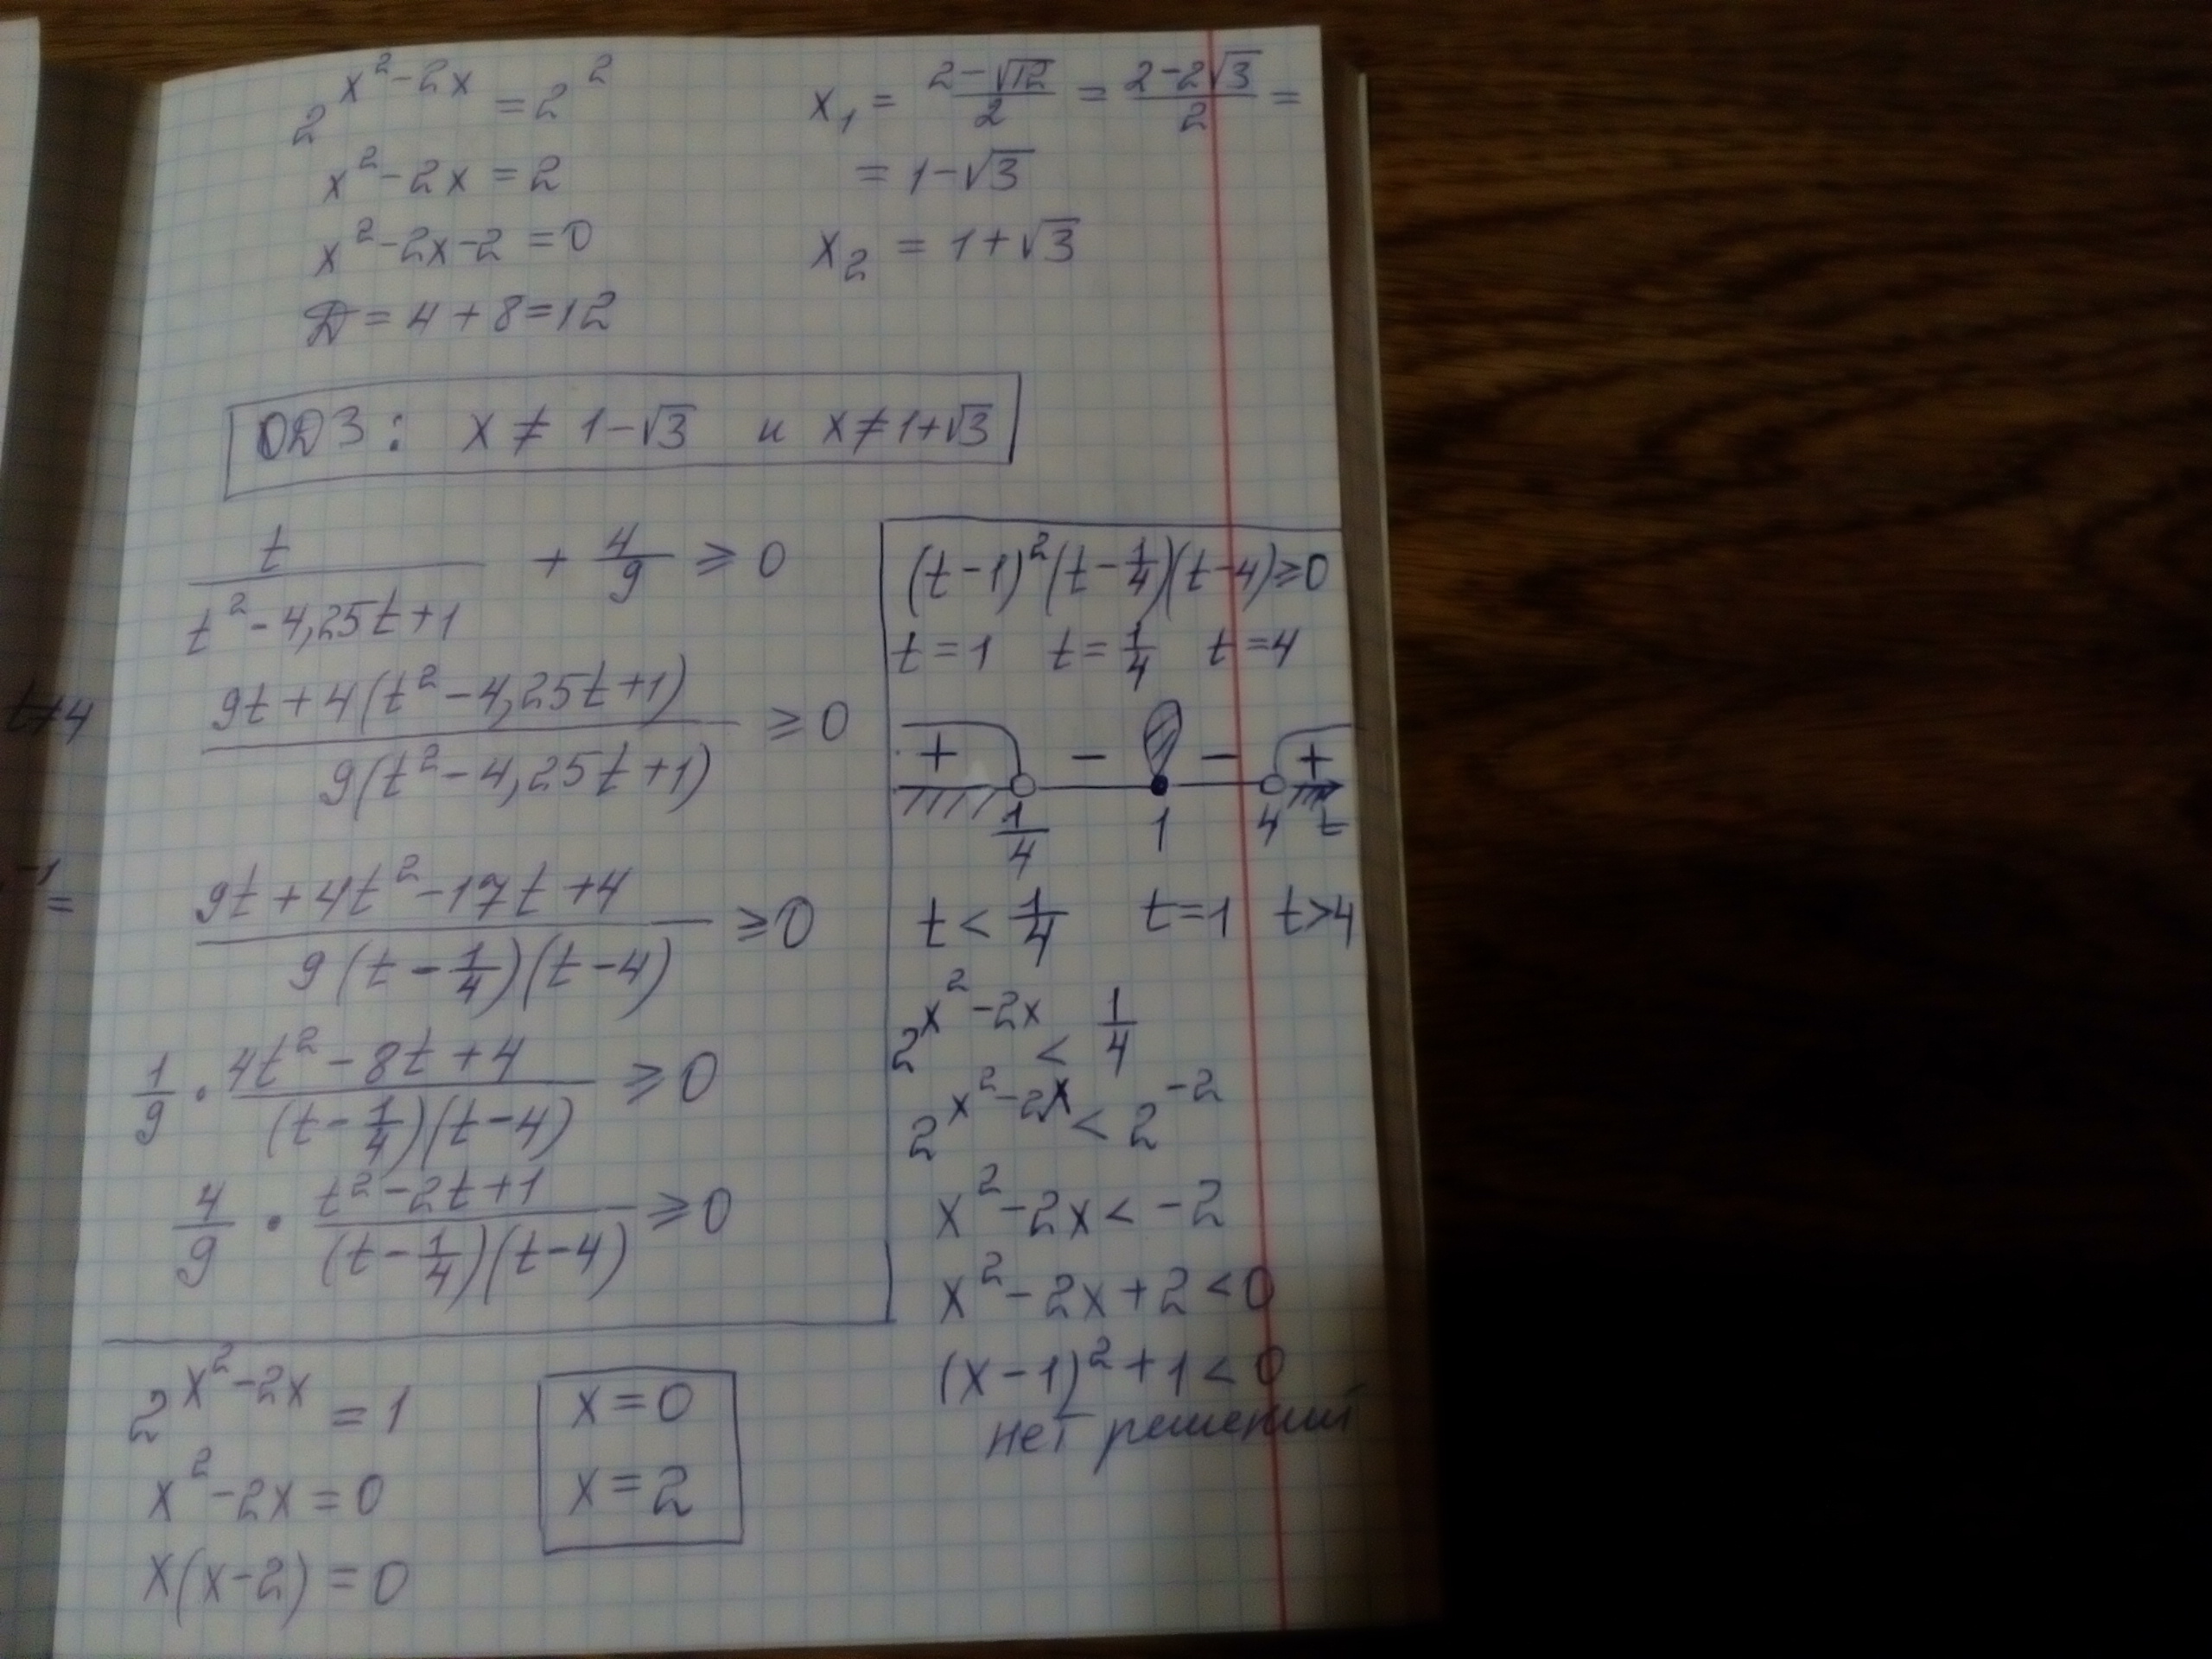 2^(x²-2x) = 2²
x²-2x = 2
x²-2x-2 = 0
D = 4+8 = 12
x₁ = (2-√12)/2 = (2-2√3)/2 =
= 1-√3
x₂ = 1+√3
ОДЗ: x ≠ 1-√3 и x ≠ 1+√3
t/(t²-4,25t+1) + 4/9 ⩾ 0
(9t+4(t²-4,25t+1))/(9(t²-4,25t+1)) ⩾ 0
(9t+4t²-17t+4)/(9(t-1/4)(t-4)) ⩾ 0
1/9 · (4t²-8t+4)/((t-1/4)(t-4)) ⩾ 0
4/9 · (t²-2t+1)/((t-1/4)(t-4)) ⩾ 0
t≠4
-1 =
(t-1)²(t-1/4)(t-4) ⩾ 0
t=1 t=1/4 t=4
+ - - +
1/4 1 4 t
t < 1/4 t=1 t>4
2^(x²-2x) < 1/4
2^(x²-2x) < 2^(-2)
x²-2x < -2
x²-2x+2 < 0
(x-1)²+1 < 0
нет решений
2^(x²-2x) = 1
x²-2x = 0
x(x-2) = 0
x=0
x=2